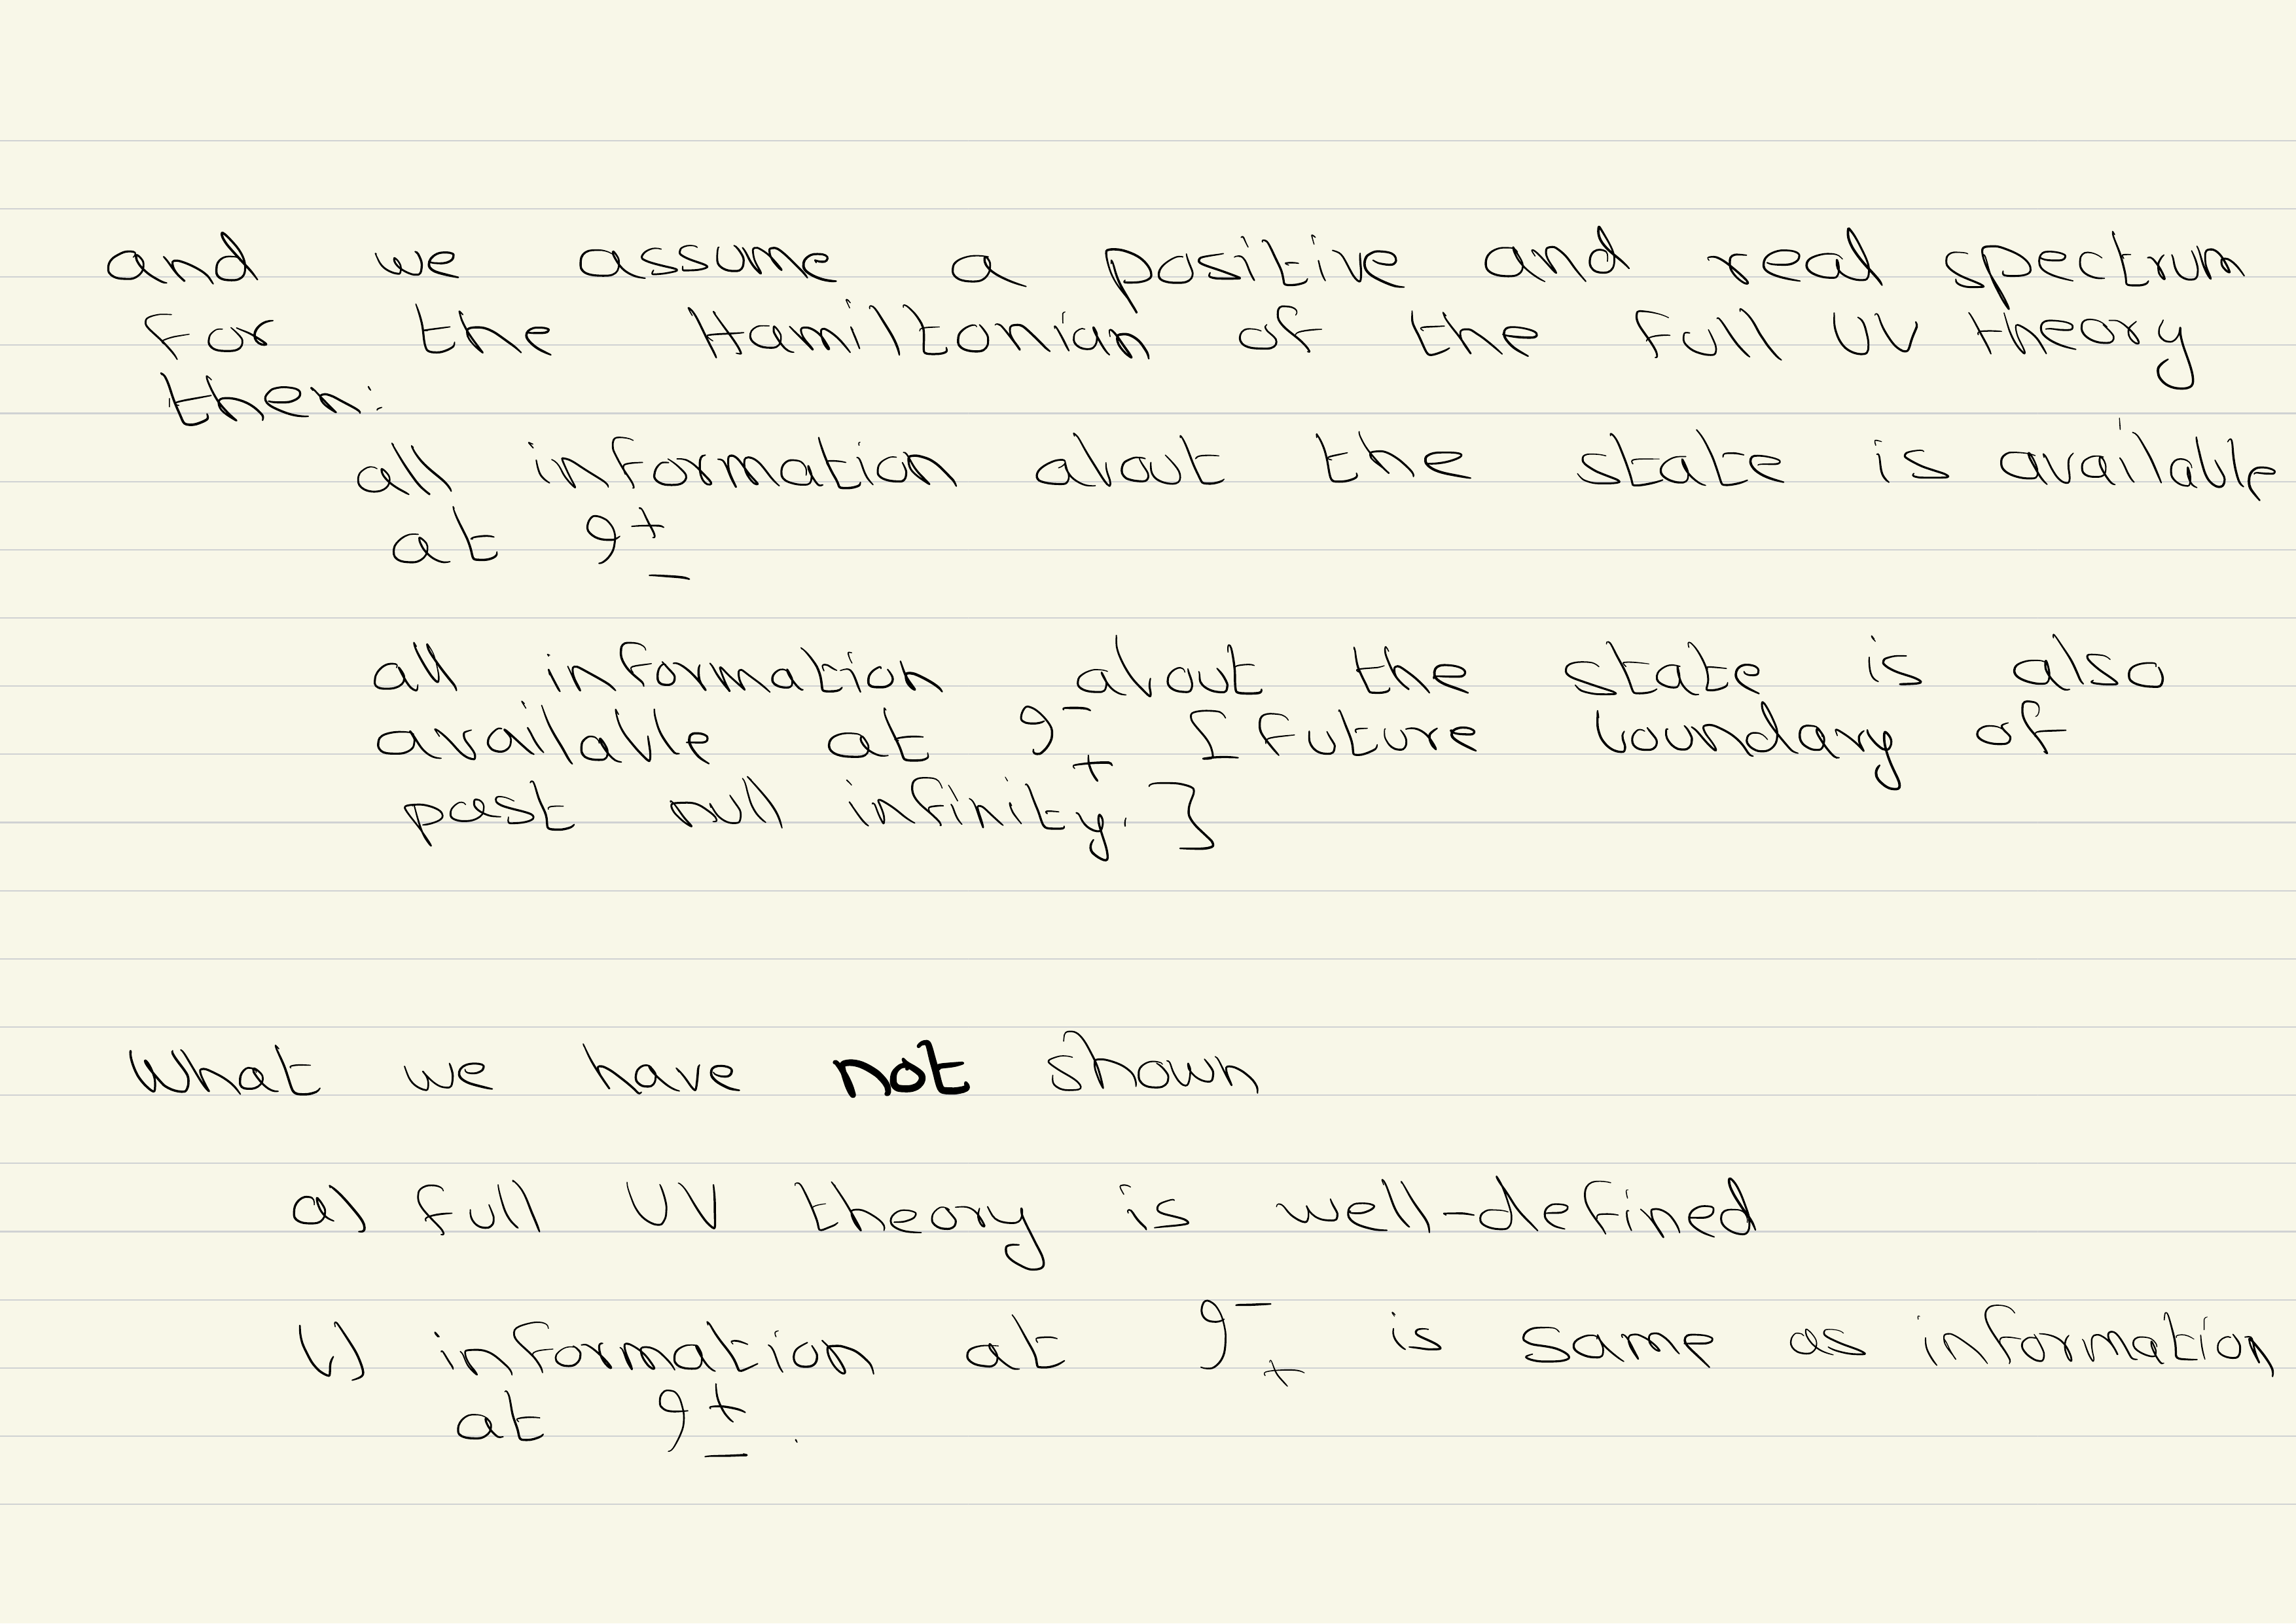 and we assume a positive and real spectrum
for the Hamiltonian of the full UV theory
then:
all information about the state is available
at ℐ⁺₋
all information about the state is also
available at ℐ⁻₊ [future boundary of
past null infinity.]
What we have not shown
a) full UV theory is well-defined
b) information at ℐ⁻₊ is same as information
at ℐ⁺₋.